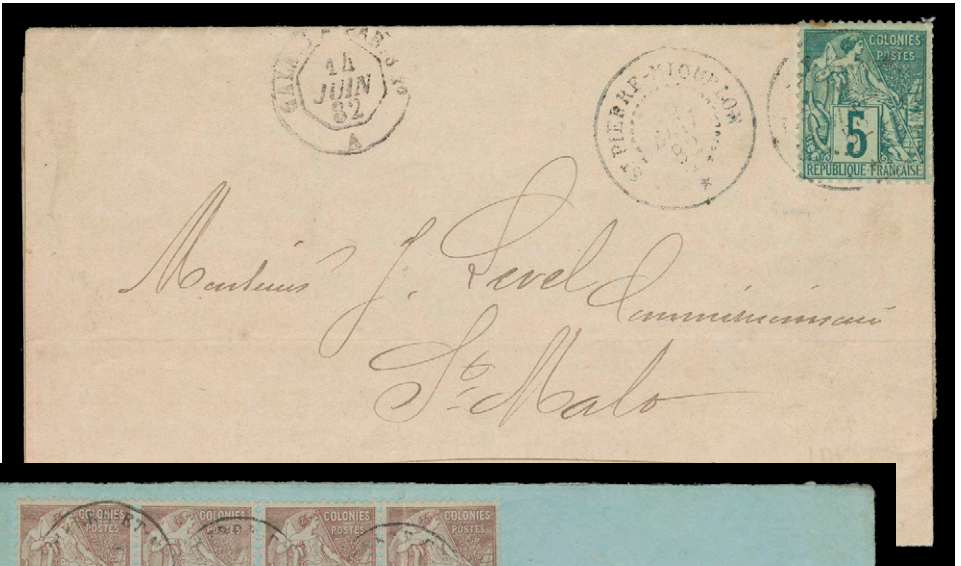 14
JUIN
82
A
ST PIERRE-MIQUELON
COLONIES
POSTES
5
RÉPUBLIQUE FRANÇAISE
Monsieur J. Revel
Commissionnaire
St. Malo
COLONIES
POSTES
COLONIES
POSTES
COLONIES
POSTES
COLONIES
POSTES